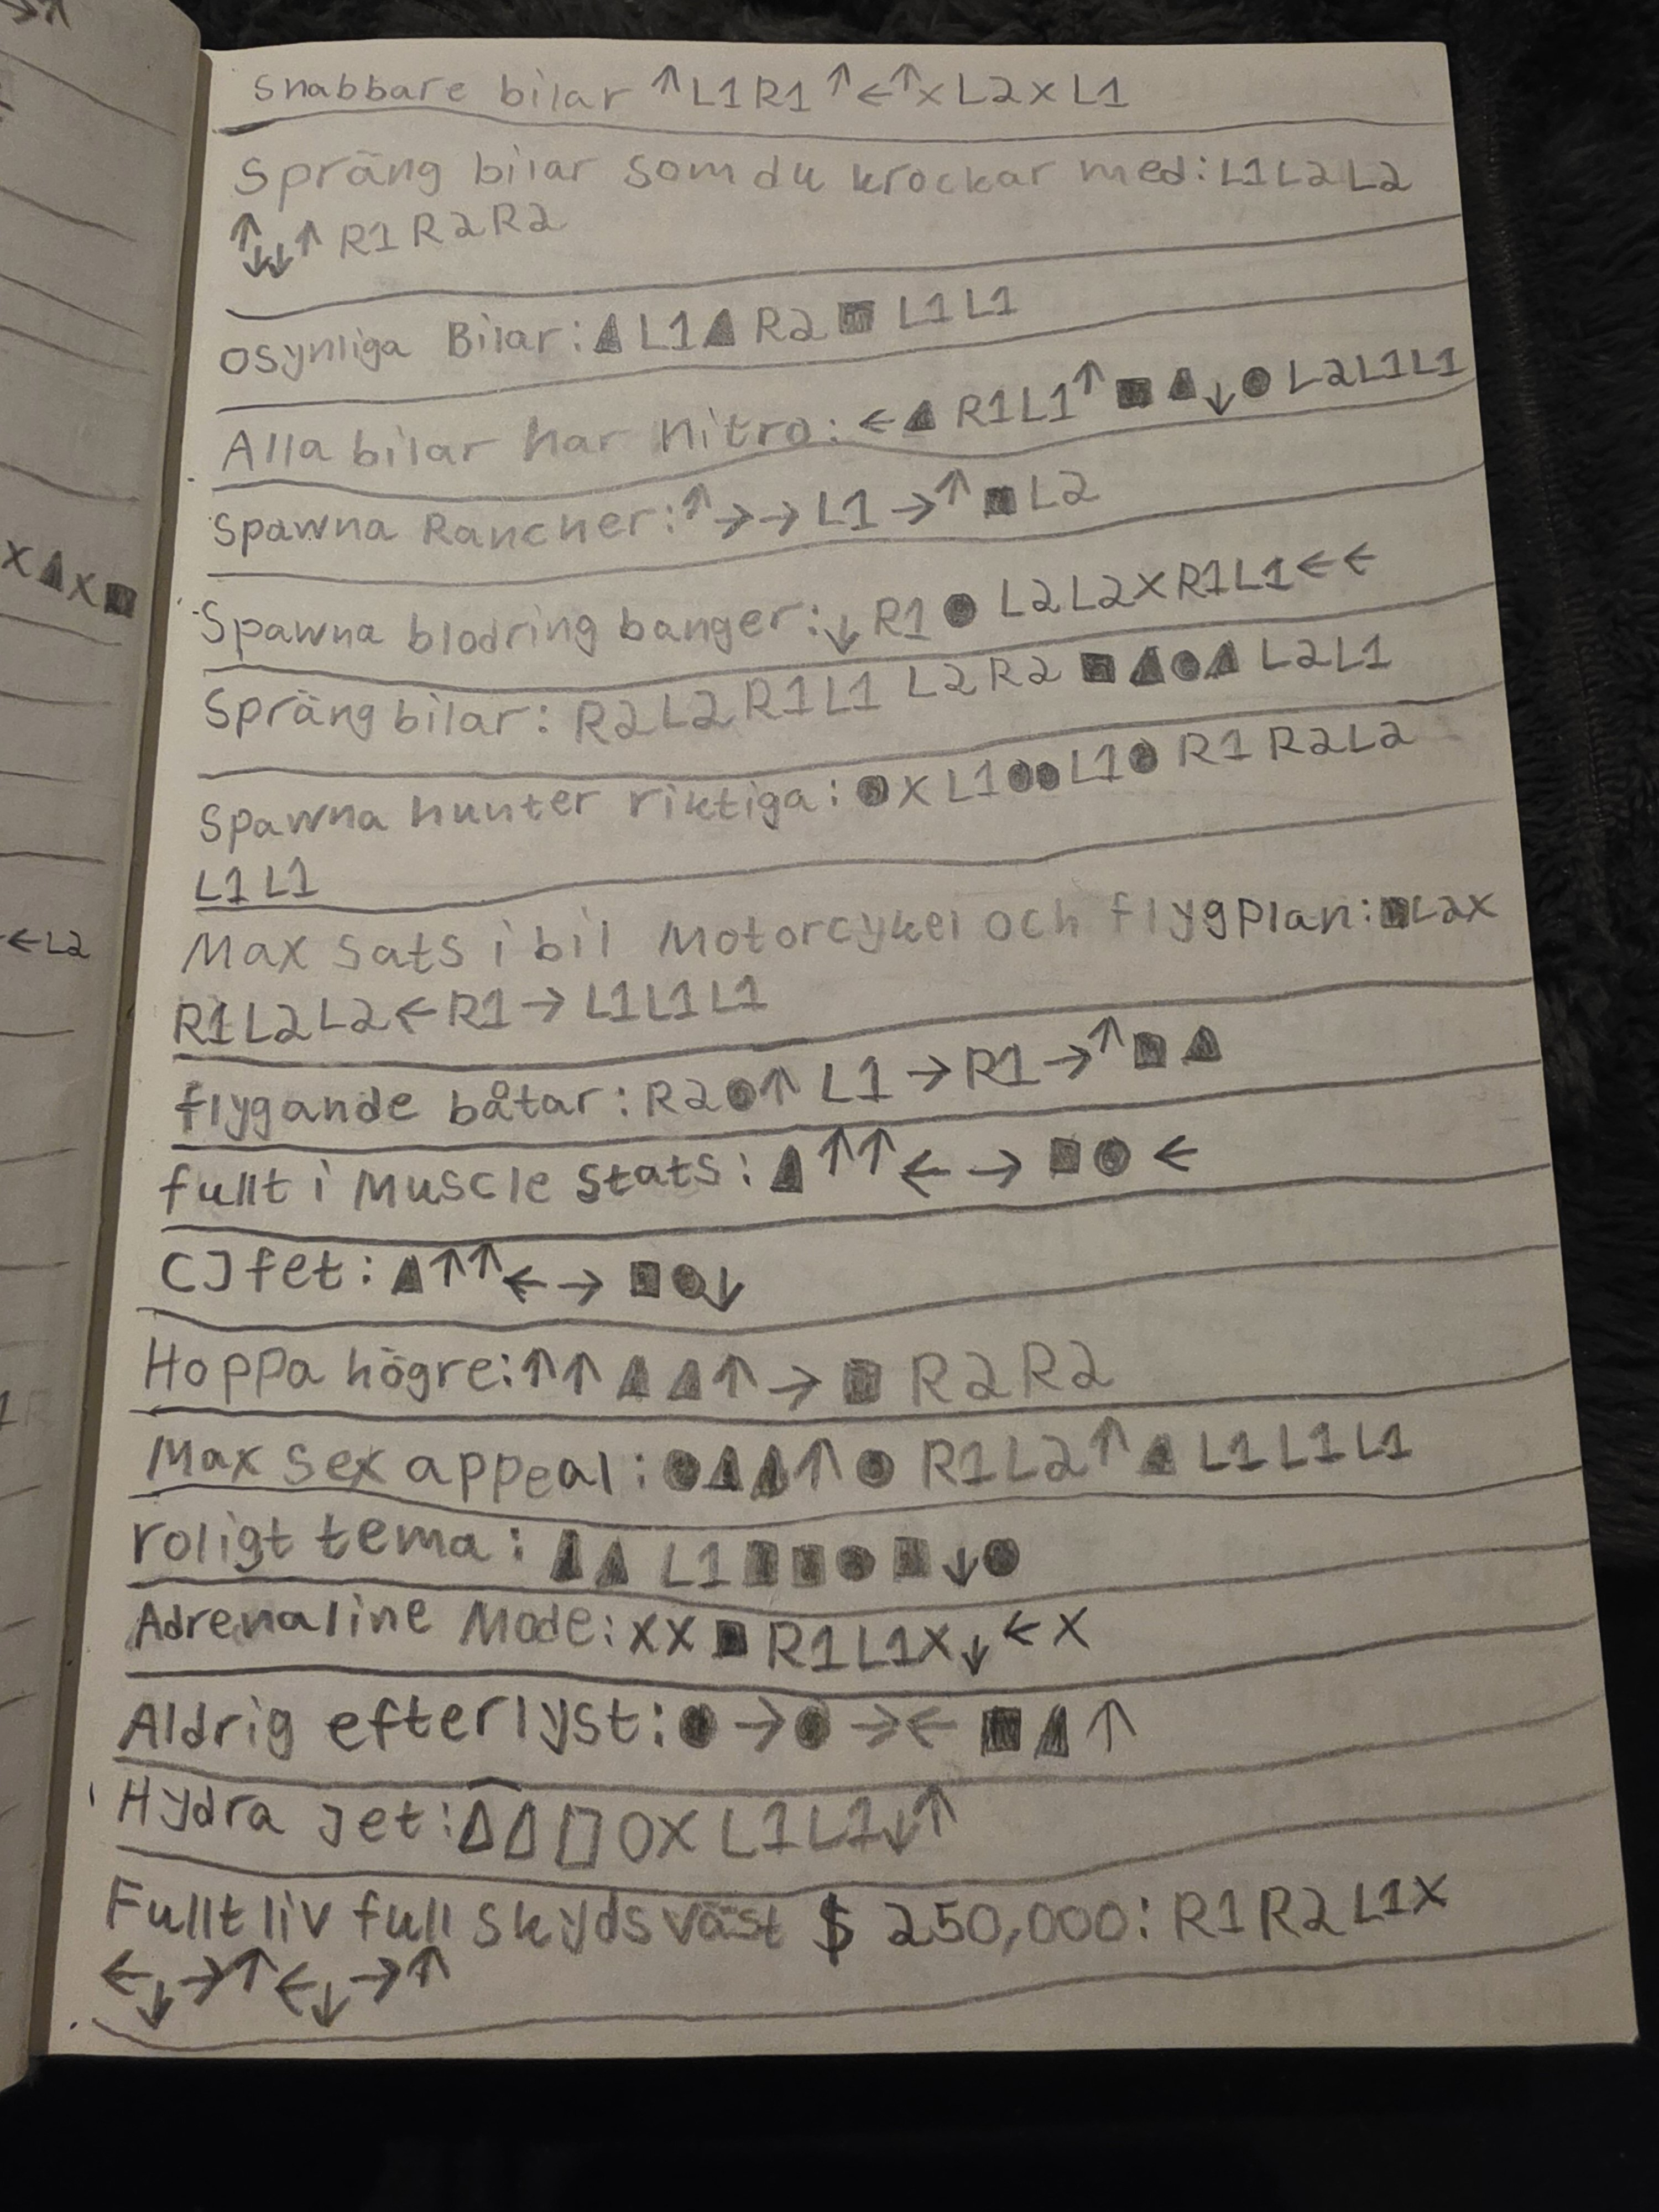 →↑
snabbare bilar ↑ L1 R1 ↑ ← ↑ x L2 x L1
Spräng bilar som du krockar med: L1 L2 L2
↑ ↓ ↓ ↑ R1 R2 R2
osynliga Bilar: ▲ L1 ▲ R2 ■ L1 L1
Alla bilar har Nitro: ← ▲ R1 L1 ↑ ■ ▲ ↓ ● L2 L1 L1
Spawna Rancher: ↑ → → L1 → ↑ ■ L2
X ▲ X ■
Spawna blodring banger: ↓ R1 ● L2 L2 X R1 L1 ← ←
Spräng bilar: R2 L2 R1 L1 L2 R2 ■ ▲ ● ▲ L2 L1
Spawna hunter riktiga: ● X L1 ● ● L1 ● R1 R2 L2
L1 L1
← L2
Max sats i bil Motorcykel och flygplan: ■ L2 X
R1 L2 L2 ← R1 → L1 L1 L1
flygande båtar: R2 ● ↑ L1 → R1 → ↑ ■ ▲
fullt i Muscle stats: ▲ ↑ ↑ ← → ■ ● ←
CJ fet: ▲ ↑ ↑ ← → ■ ● ↓
Hoppa högre: ↑ ↑ ▲ ▲ ↑ → ■ R2 R2
Max sex appeal: ● ▲ ▲ ↑ ● R1 L2 ↑ ▲ L1 L1 L1
roligt tema: ▲ ▲ L1 ■ ■ ● ■ ↓ ●
Adrenaline Mode: X X ■ R1 L1 X ↓ ← X
Aldrig efterlyst: ● → ● → ← ■ ▲ ↑
Hydra Jet: △ △ □ O X L1 L1 ↓ ↑
Fullt liv full skydsväst $ 250,000: R1 R2 L1 X
← ↓ → ↑ ← ↓ → ↑